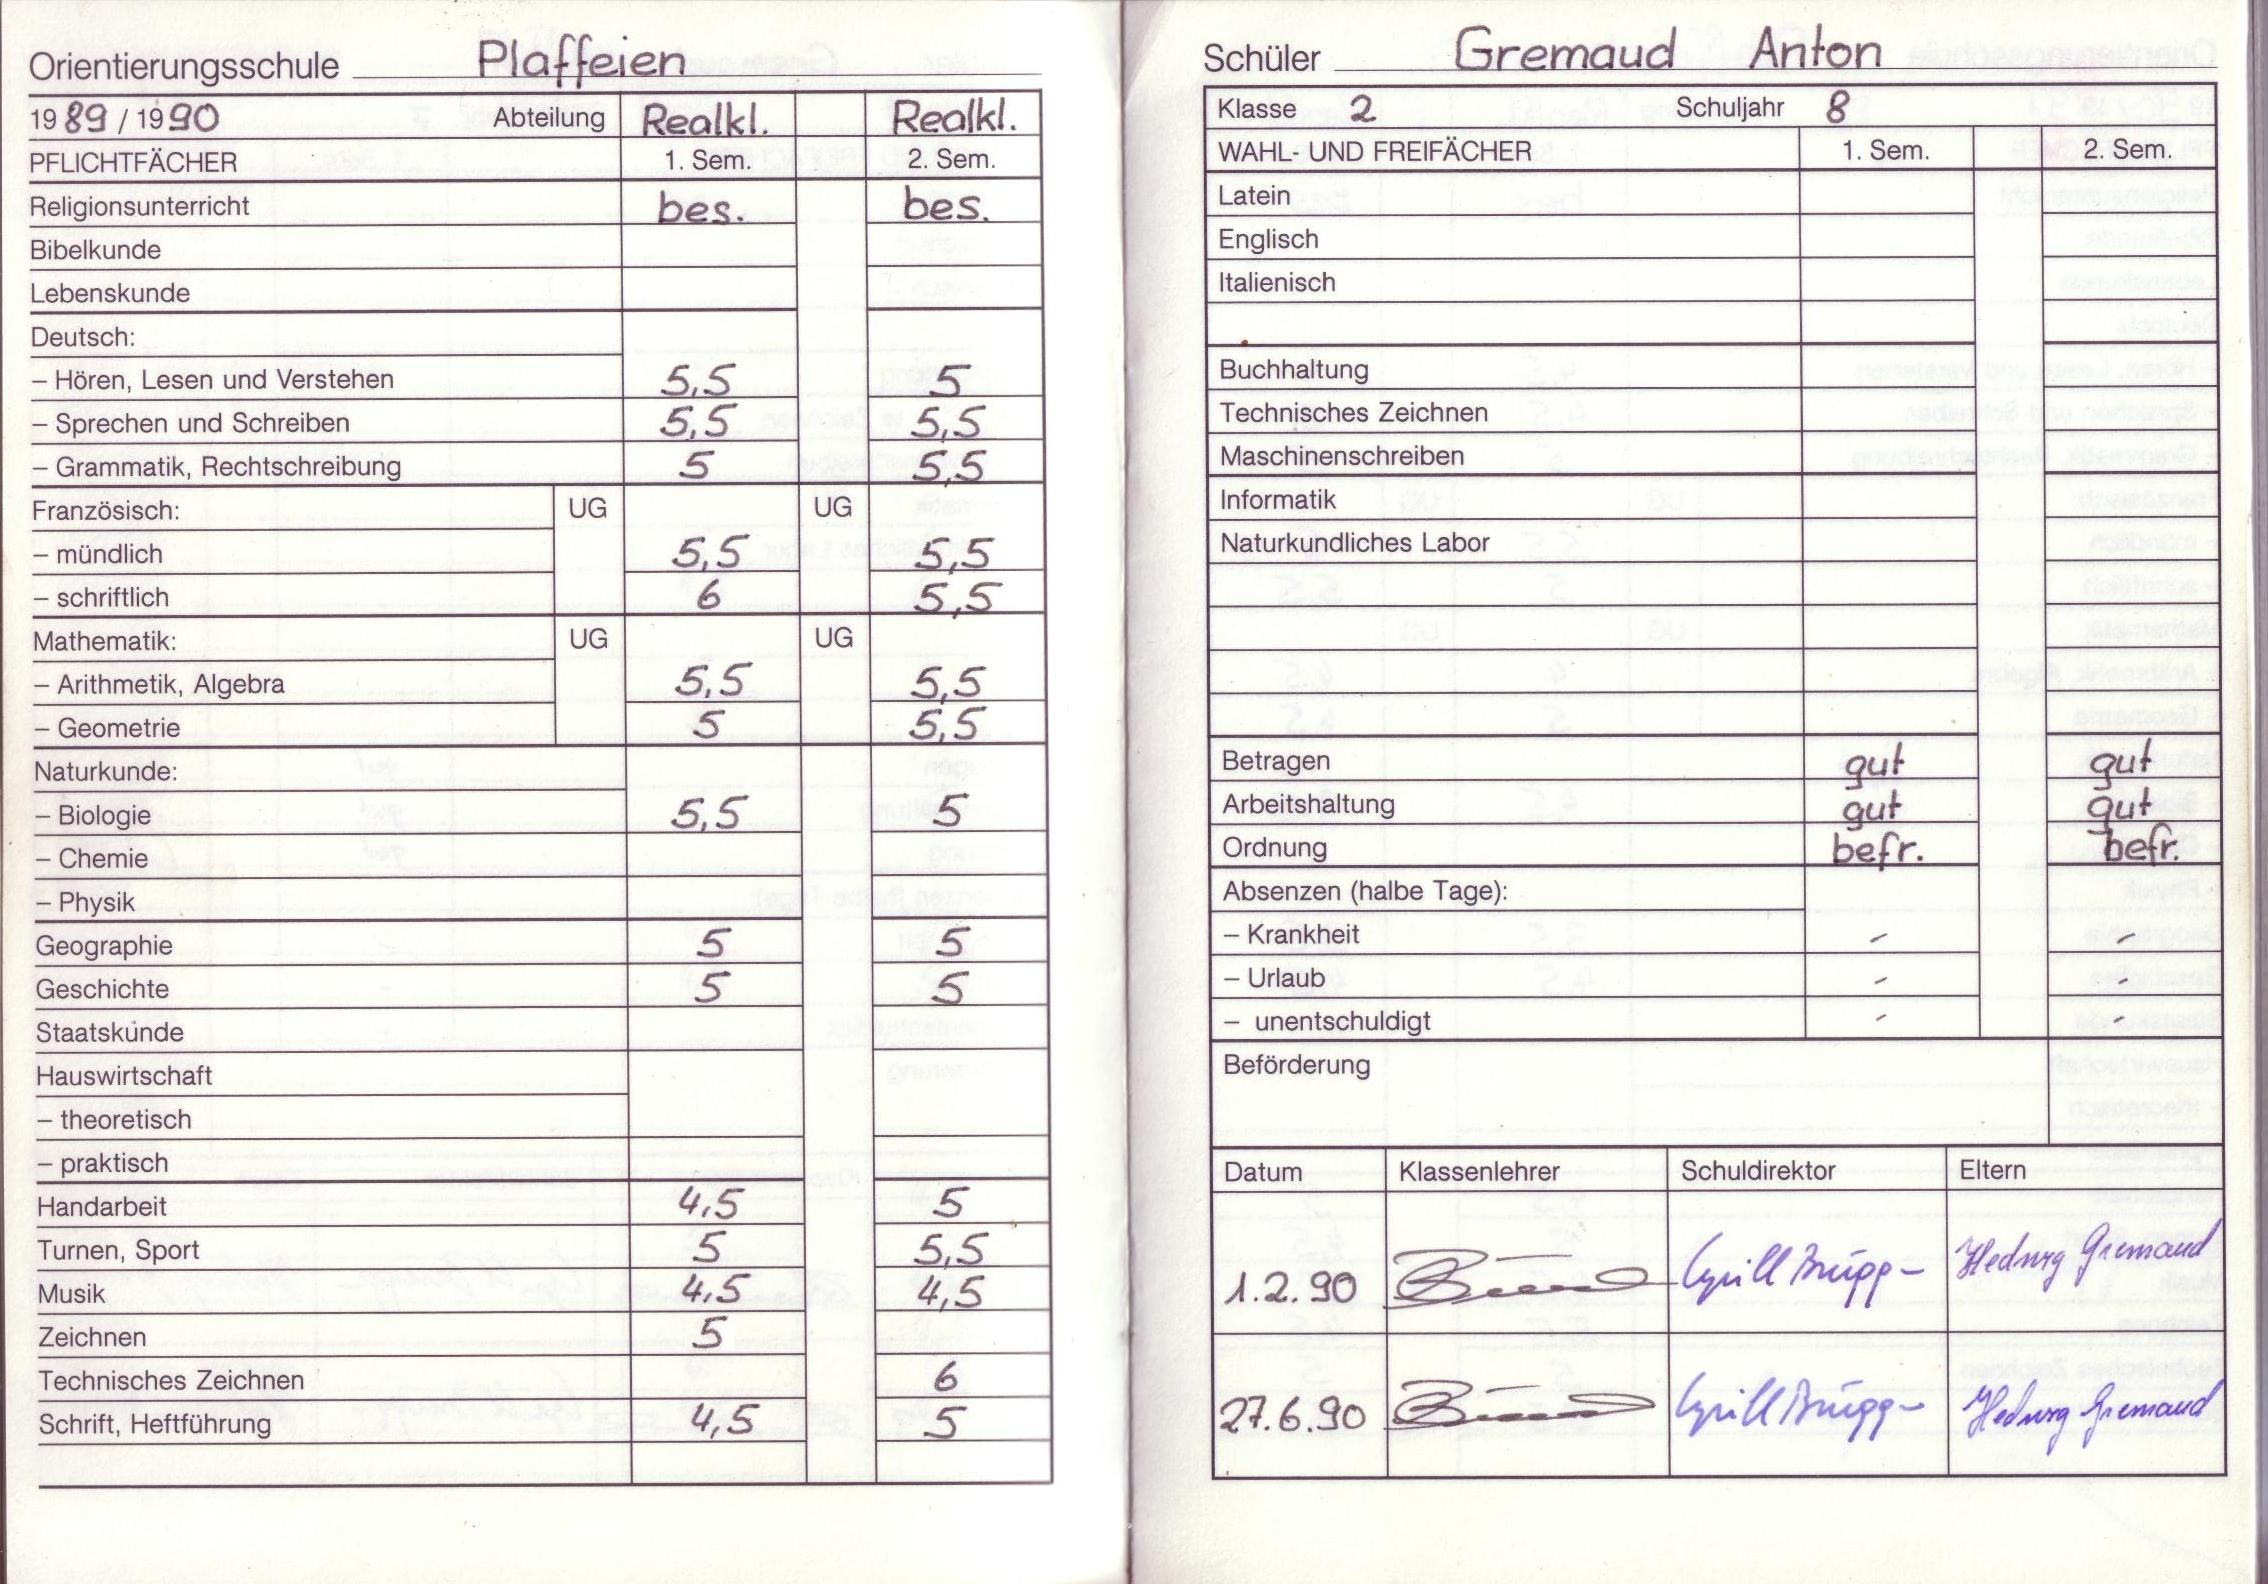 Orientierungsschule Plaffeien
1989 / 1990 Abteilung Realkl. Realkl.
PFLICHTFÄCHER 1. Sem. 2. Sem.
Religionsunterricht bes. bes.
Bibelkunde
Lebenskunde
Deutsch:
– Hören, Lesen und Verstehen 5,5 5
– Sprechen und Schreiben 5,5 5,5
– Grammatik, Rechtschreibung 5 5,5
Französisch: UG UG
– mündlich 5,5 5,5
– schriftlich 6 5,5
Mathematik: UG UG
– Arithmetik, Algebra 5,5 5,5
– Geometrie 5 5,5
Naturkunde:
– Biologie 5,5 5
– Chemie
– Physik
Geographie 5 5
Geschichte 5 5
Staatskunde
Hauswirtschaft
– theoretisch
– praktisch
Handarbeit 4,5 5
Turnen, Sport 5 5,5
Musik 4,5 4,5
Zeichnen 5
Technisches Zeichnen 6
Schrift, Heftführung 4,5 5
Schüler Gremaud Anton
Klasse 2 Schuljahr 8
WAHL- UND FREIFÄCHER 1. Sem. 2. Sem.
Latein
Englisch
Italienisch
Buchhaltung
Technisches Zeichnen
Maschinenschreiben
Informatik
Naturkundliches Labor
Betragen gut gut
Arbeitshaltung gut gut
Ordnung befr. befr.
Absenzen (halbe Tage):
– Krankheit – –
– Urlaub – –
– unentschuldigt – –
Beförderung
Datum Klassenlehrer Schuldirektor Eltern
1.2.90 Cyrill Brügg Hedwig Gremaud
27.6.90 Cyrill Brügg Hedwig Gremaud